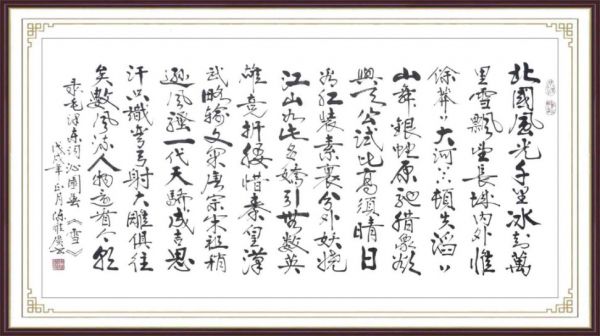 北國風光千里冰封萬
里雪飄望長城内外惟
餘莽〃大河上下頓失滔〃
山舞銀蛇原馳腊象欲
與天公試比高須晴日
看紅裝素裹分外妖嬈
江山如此多嬌引無數英
雄競折腰惜秦皇漢
武略輸文采唐宗宋祖稍
遜風騷一代天驕成吉思
汗只識彎弓射大雕俱往
矣數風流人物還看今朝
录毛泽东詞沁園春《雪》
戊戌年正月